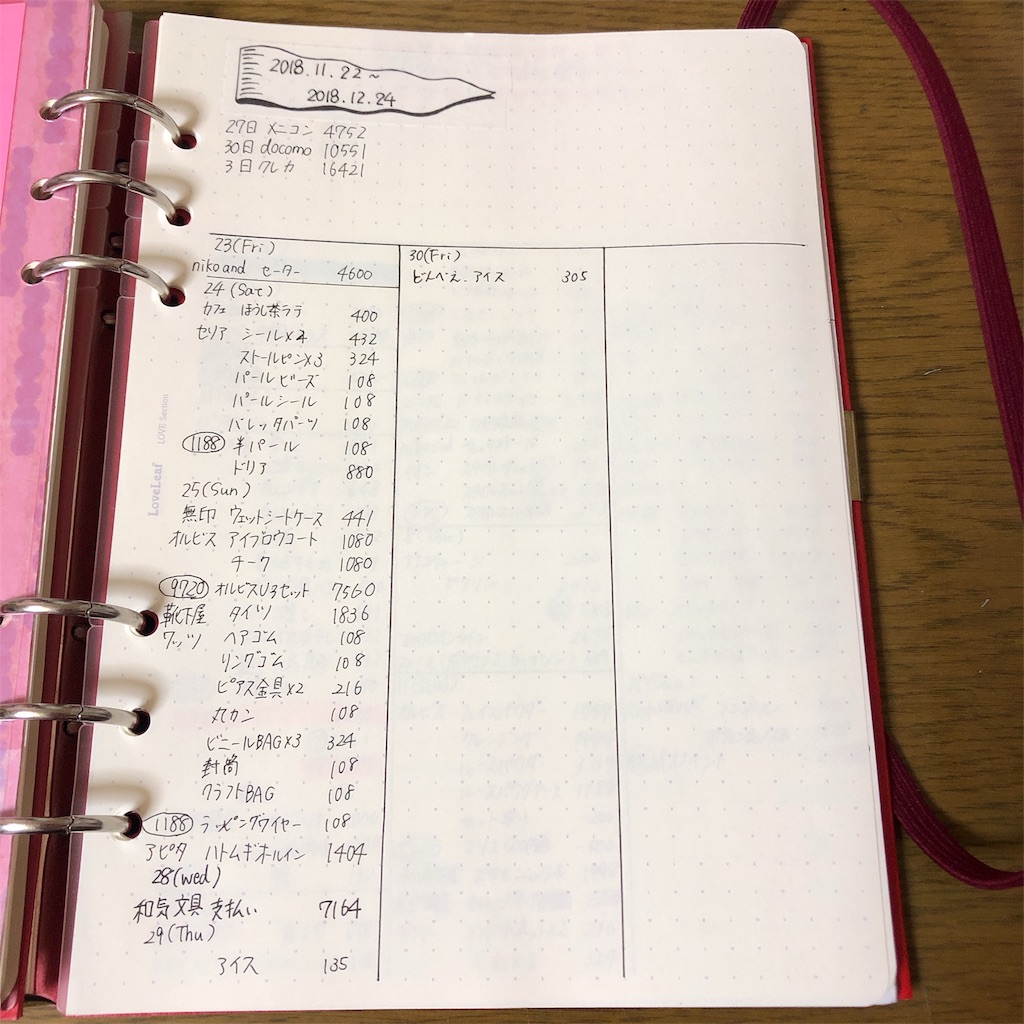 2018.11.22~
2018.12.24
27日 メニコン 4752
30日 docomo 10551
3日 クレカ 16421
23(Fri)
niko and セーター 4600
24(Sat)
カフェ ほうじ茶ラテ 400
セリア シール×4 432
ストールピン×3 324
パールビーズ 108
パールシール 108
バレッタパーツ 108
1188 半パール 108
ドリア 880
25(Sun)
無印 ウェットシートケース 441
オルビス アイブロウコート 1080
チーク 1080
9720 オルビスU3セット 7560
靴下屋 タイツ 1836
ワッツ ヘアゴム 108
リングゴム 108
ピアス金具×2 216
丸カン 108
ビニールBAG×3 324
封筒 108
クラフトBAG 108
1188 ラッピングワイヤー 108
アピタ ハトムギオールイン 1404
28(Wed)
和気文具 支払い 7164
29(Thu)
アイス 135
30(Fri)
どんべえ、アイス 305
LoveLeaf LOVE Section